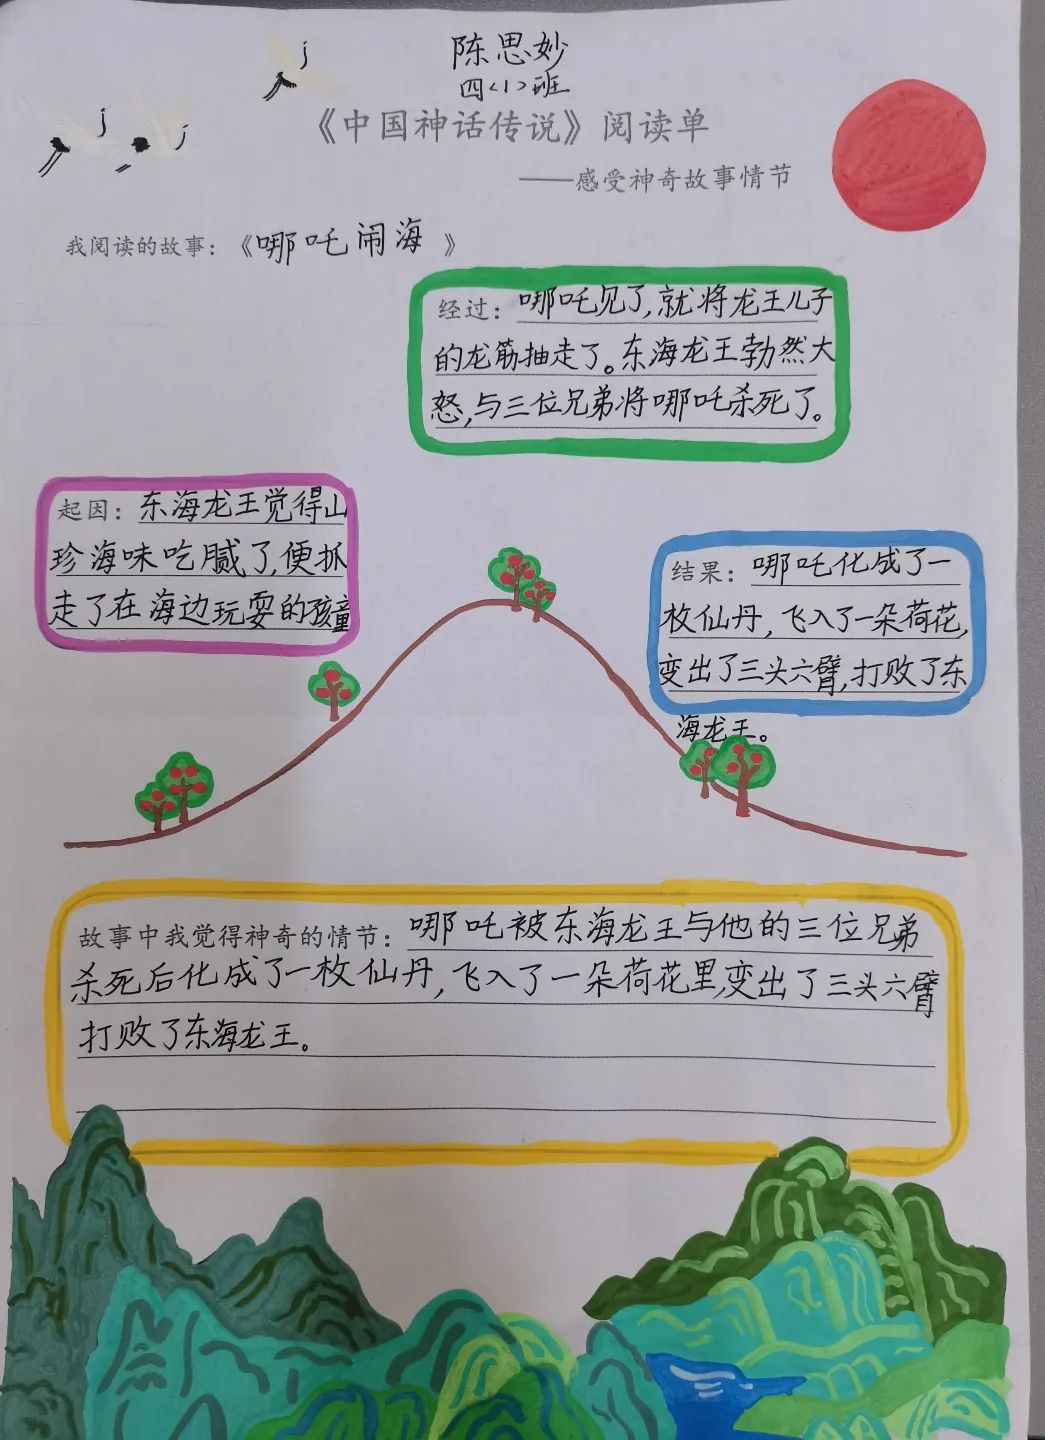 陈思妙
四<1>班
《中国神话传说》阅读单
——感受神奇故事情节
我阅读的故事：《哪吒闹海》
经过：哪吒见了,就将龙王儿子
的龙筋抽走了。东海龙王勃然大
怒,与三位兄弟将哪吒杀死了。
起因：东海龙王觉得山
珍海味吃腻了,便抓
走了在海边玩耍的孩童
结果：哪吒化成了一
枚仙丹,飞入了一朵荷花,
变出了三头六臂,打败了东
海龙王。
故事中我觉得神奇的情节：哪吒被东海龙王与他的三位兄弟
杀死后化成了一枚仙丹,飞入了一朵荷花里,变出了三头六臂
打败了东海龙王。